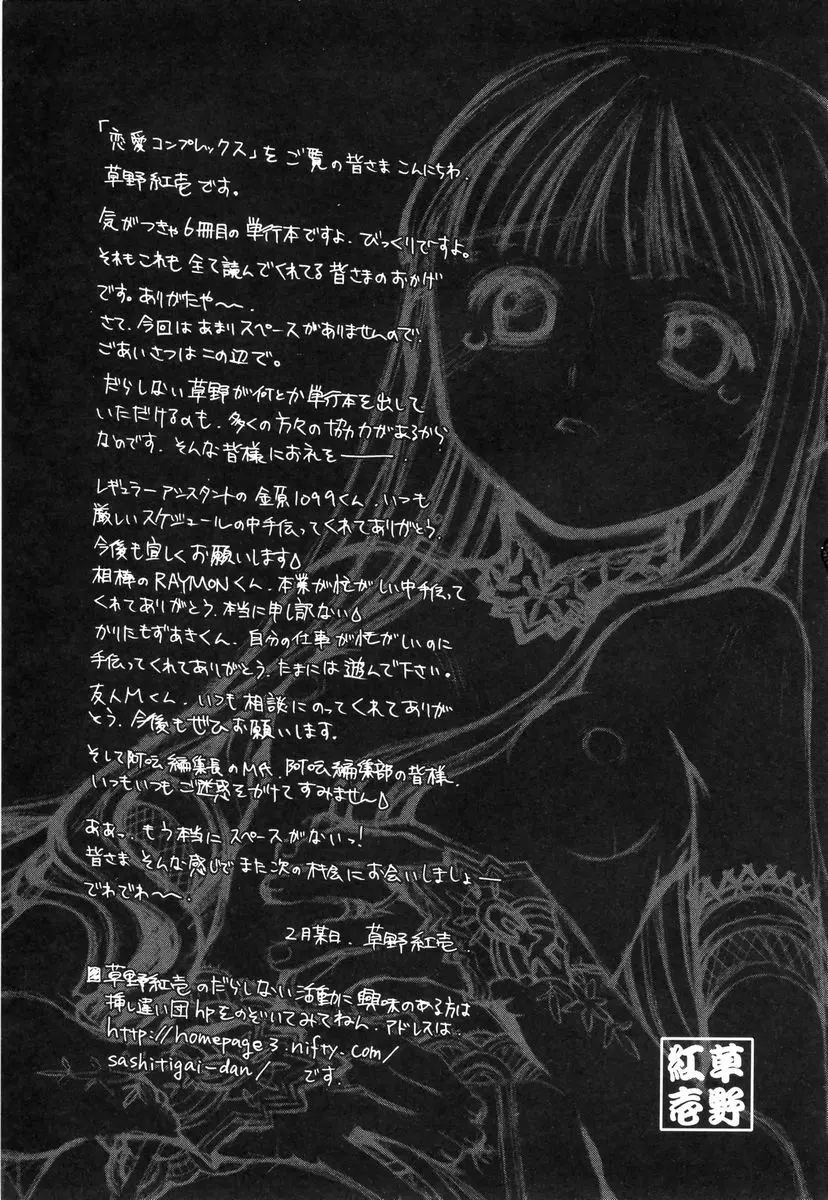 「恋愛コンプレックス」をご覧の皆さまこんにちわ.
草野紅壱です。
気がつきゃ6冊目の単行本ですよ.びっくりですよ。
それもこれも全て読んでくれてる皆さまのおかげ
です。ありがたや〜.
さて、今回はあまりスペースがありませんので、
ごあいさつはこの辺で。
だらしない草野が何とか単行本を出して
いただけるのも、多くの方々の協力があるから
なのです.そんな皆様にお礼を――.
レギュラーアシスタントの金原1099くん.いつも
厳しいスケジュールの中手伝ってくれてありがとう.
今後も宜しくお願いします△
相棒のRAYMONくん.本業が忙がしい中手伝って
くれてありがとう.本当に申し訳ない△
かりたもずあきくん.自分の仕事が忙がしいのに
手伝ってくれてありがとう.たまには遊んで下さい。
友人Mくん.いつも相談にのってくれてありが
とう.今後もぜひお願いします.
そして阿吽編集長のM氏.阿吽編集部の皆様.
いつもいつもご迷惑をかけてすみません△
ああっ.もう本当にスペースがないっ!
皆さまそんな感じでまた次の機会にお会いしましょー
でわでわ〜.
2月某日.草野紅壱.
草野紅壱のだらしない活動に興味のある方は
挿し違い団hpをのぞいてみてねん.アドレスは.
http://homepage3.nifty.com/
sashitigai-dan/ です.
草野
紅壱